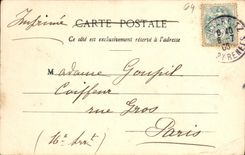 Imprimé
CARTE POSTALE
Ce côté est exclusivement réservé à l'adresse
M adame Goupil
Coiffeur
rue Gros
Paris
(16e Arrt)